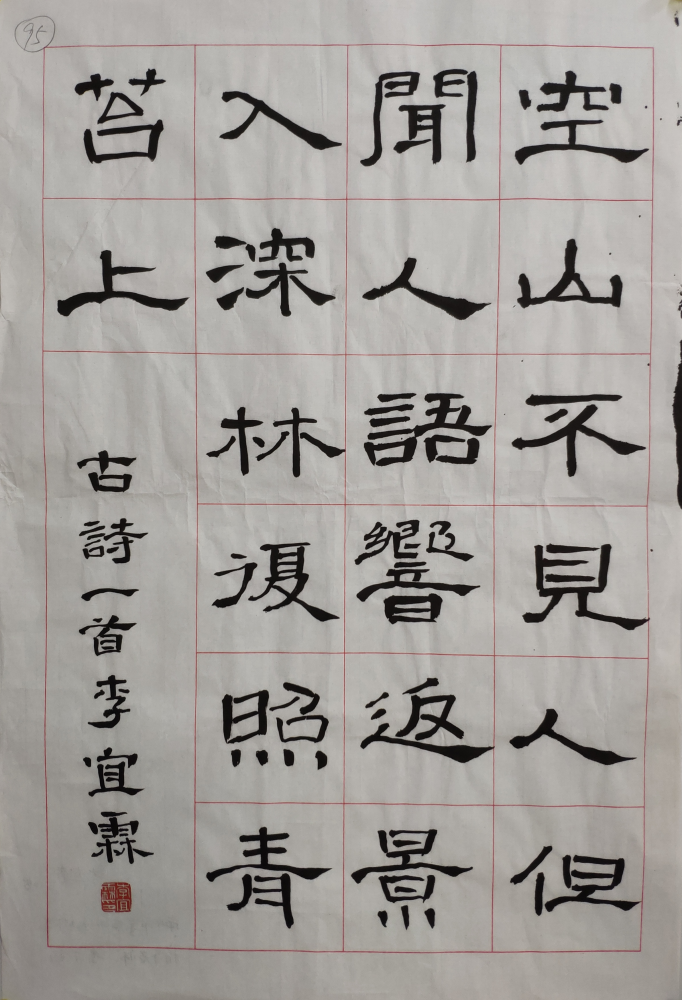 95
空山不見人但
聞人語響返景
入深林復照青
苔上
古詩一首李宜霖
李宜霖